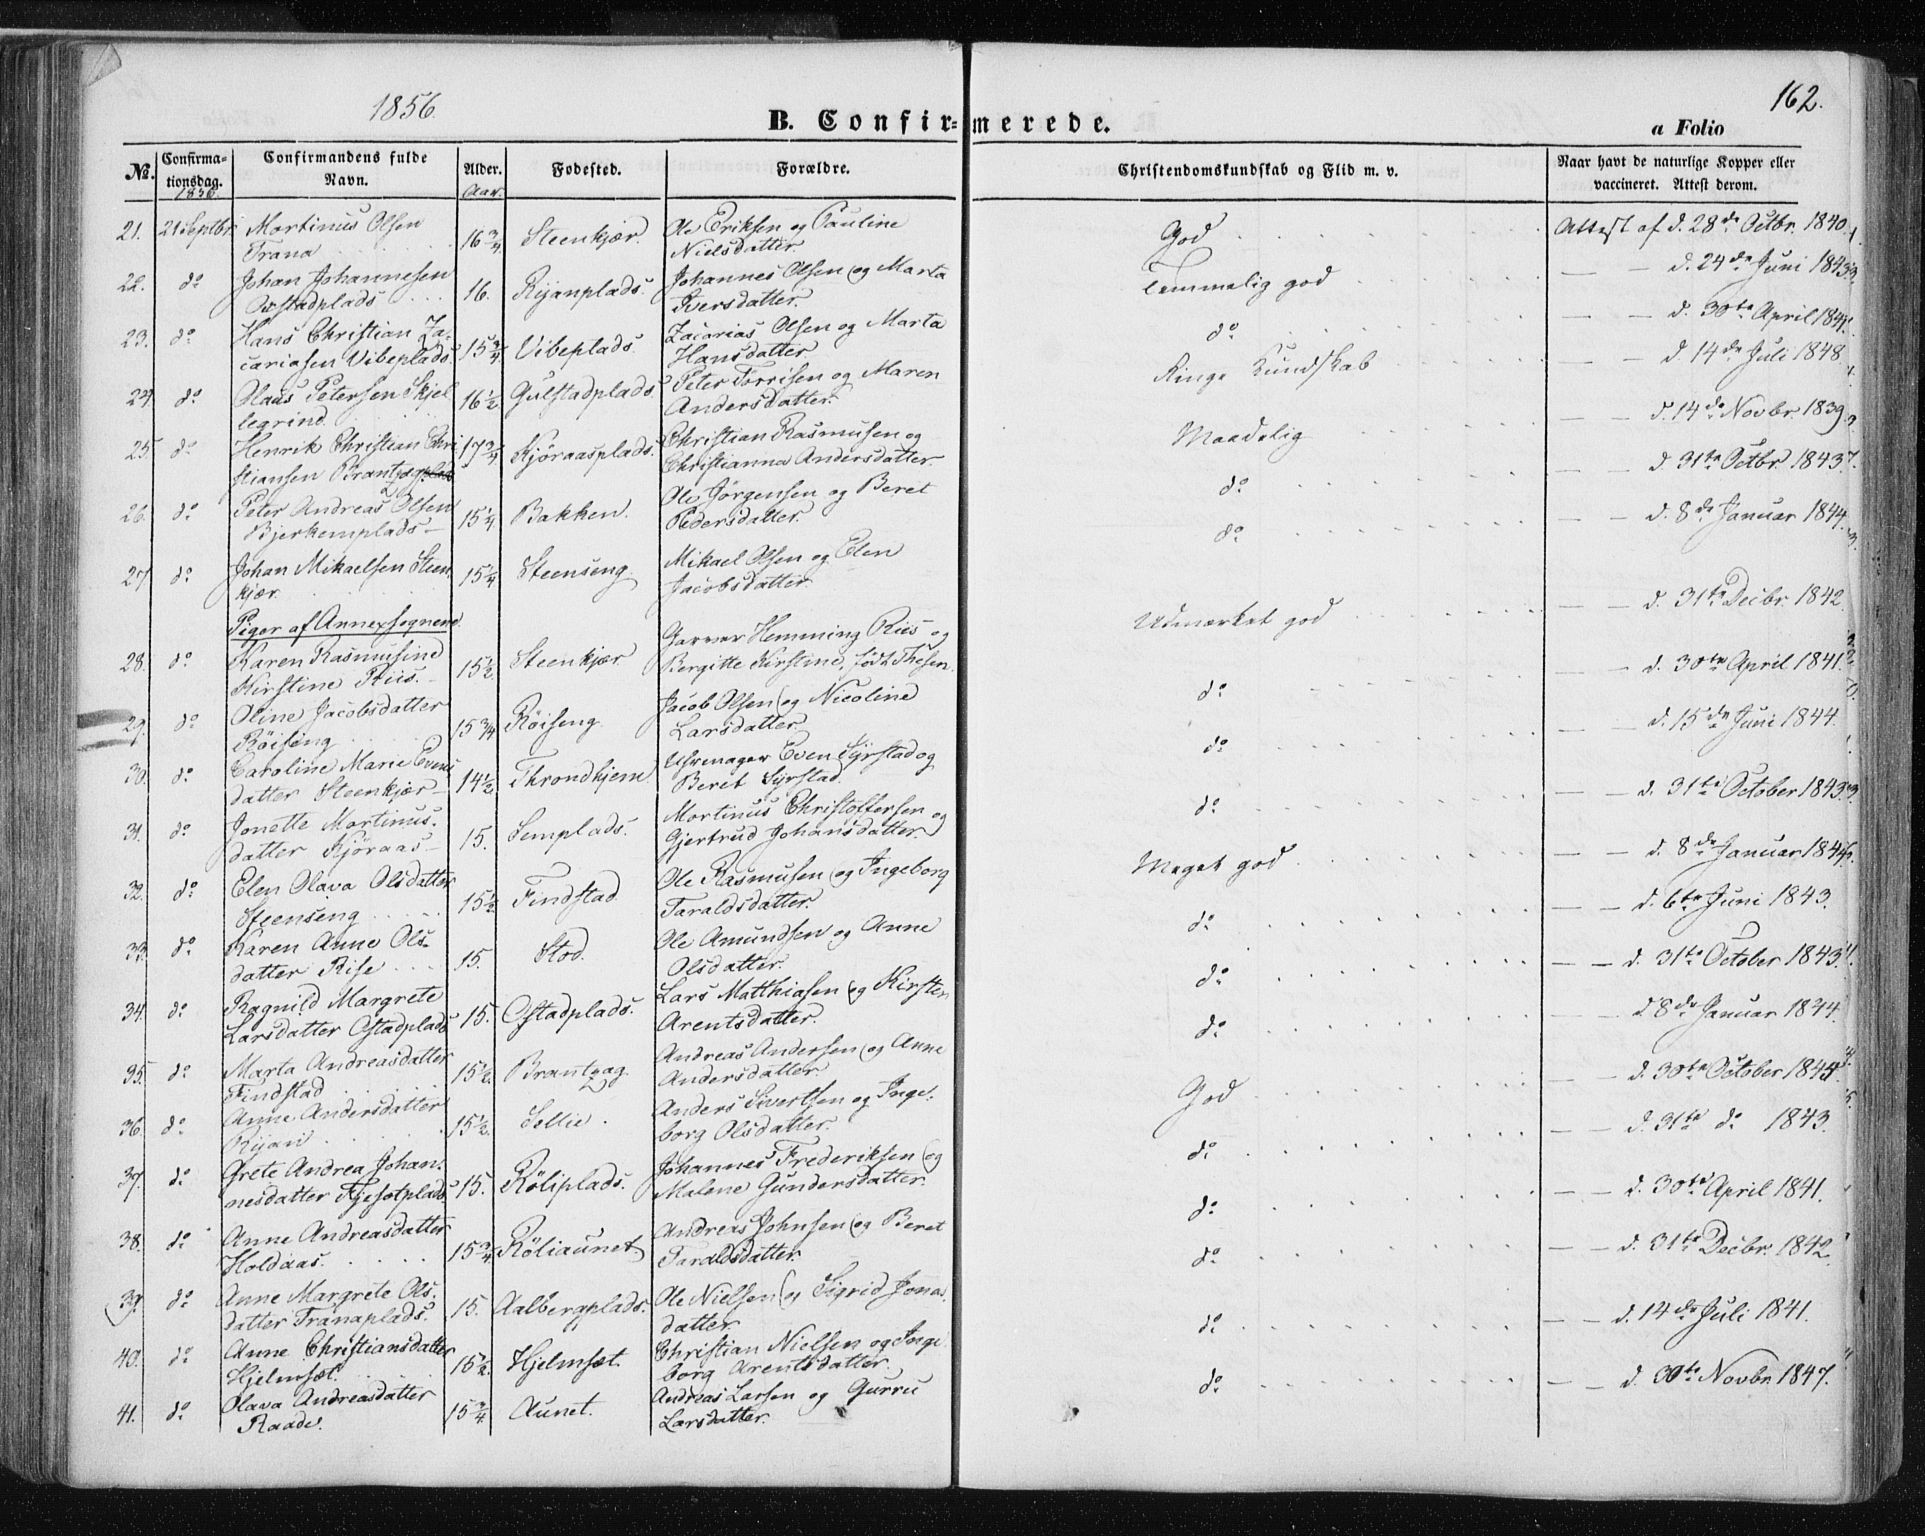 1856.
162.
B. Confirmerede.
a Folio
No. Confirmationsdag. Confirmandens fulde Navn. Alder. Fødested. Forældre. Christendomskundskab og Flid m. v. Naar havt de naturlige Kopper eller vaccineret. Attest derom.
1856. Aar.
21. 21 Septbr Mortinus Olsen 16 3/4 Steenkjær. Ole Eriksen og Pauline God Attest af d. 28de Octbr. 1840
Trana Nielsdatter.
22. do Johan Johannesen 16. Ryanplads. Johannes Olsen og Marta Temmelig god — — d. 24de Juni 1843
Ofstadplads Iversdatter.
23. do Hans Christian Za- 15 3/4 Vibeplads Zacarias Olsen og Marta do — — d. 30te April 1841
cariasen Vibeplads. Hansdatter
24 do Olaus Petersen Skjel 16 1/2 Gulstadplads. Peter Torrisen og Maren Ringe Kundskab — — d. 14de Juli 1848
legrind. Andersdatter.
25 do Henrik Christian Chri 17 3/4 Kjøraasplads. Christian Rasmusen og Maadelig — — d. 14de Novbr 1839
stiansen Brantzag Christianna Andersdatter.
26. do Peter Andreas Olsen 15 1/4 Bakken. Ole Jørgensen og Beret do — — d. 31te Octbr. 1843
Bjerkemplads Pedersdatter.
27 do Johan Mikaelsen Steen 15 1/4 Steenseng Mikael Olsen og Elen do — — d. 8de Januar 1844
kjær. Jacobsdatter
Piger af Annexsognene
28. do Karen Rasmusine 15 1/2 Steenkjær Garver Hemming Riis og Udmærket god — — d. 31te Decbr. 1842
Kirstine Riis. Bergitte Kirstine, født Thesen.
29. do Oline Jacobsdatter 15 3/4 Røiseng Jacob Olsen og Nicoline do — d. 30te April 1841
Røiseng Larsdatter
30. do Caroline Marie Evens 14 1/2 Throndhjem Uhrmager Even Syrstad og do — d. 15de Juni 1844.
datter Steenkjær Beret Syrstad
31. do Jonette Mortinus- 15. Semplads. Mortinus Christoffersen og do — — d. 31te October 1843
datter Kjøraas Gjertrud Johansdatter.
32. do Elen Olava Olsdatter 15 1/2 Findstad Ole Rasmusen og Ingeborg Meget god — — d. 8de Januar 1844
Steenseng Taraldsdatter.
33. do Karen Anne Ols- 15. Stod. Ole Amundsen og Anne do — — d. 6te Juni 1843.
datter Rise Olsdatter.
34. do Ragnild Margrete 15. Ofstadplads. Lars Matthiasen og Kirsten do — — d. 31te October 1843
Larsdatter Ofstadplads Arentsdatter.
35. do Marta Andreasdatter 15 1/2 Brantzag Andreas Andersen og Anne do — — d 8de Januar 1844.
Findstad Andersdatter
36. do Anne Andersdatter 15 1/2 Sellie. Anders Sivertsen og Inge- God — — d. 30te October 1844
Ryan borg Olsdatter.
37. do Grete Andrea Johan- 15. Røliplads. Johannes Frederiksen og do — — d. 31te do 1843.
nesdatter Malene Gundersdatter.
38. do Anne Andreasdatter 15 3/4 Røliaunet Andreas Johnsen og Beret do — — d. 30te April 1841.
Holdaas. Taraldsdatter.
39. do Anne Margrete Ols- 15. Aalbergplads. Ole Nielsen og Sigrid Jonas- do — — d. 31te Decbr. 1842
datter Tranaplads. datter.
40. do Anne Christiansdatter 15 1/2 Hjelmsæt. Christian Nielsen og Inge do — — d. 14de Juli 1841.
Hjelmsæt. borg Arentsdatter.
41. do Olava Andreasdatter 15 3/4 Aunet. Andreas Larsen og Gurru do — — d. 30te Novbr. 1847.
Raade. Larsdatter.